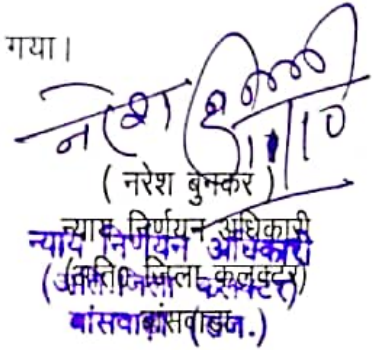 गया।
नरेश
( नरेश बुनकर )
न्याय निर्णयन अधिकारी
(अति० जिला कलक्टर)
बांसवाड़ा
न्याय निर्णयन अधिकारी
(अति. जिला कलक्टर)
बांसवाड़ा (राज.)